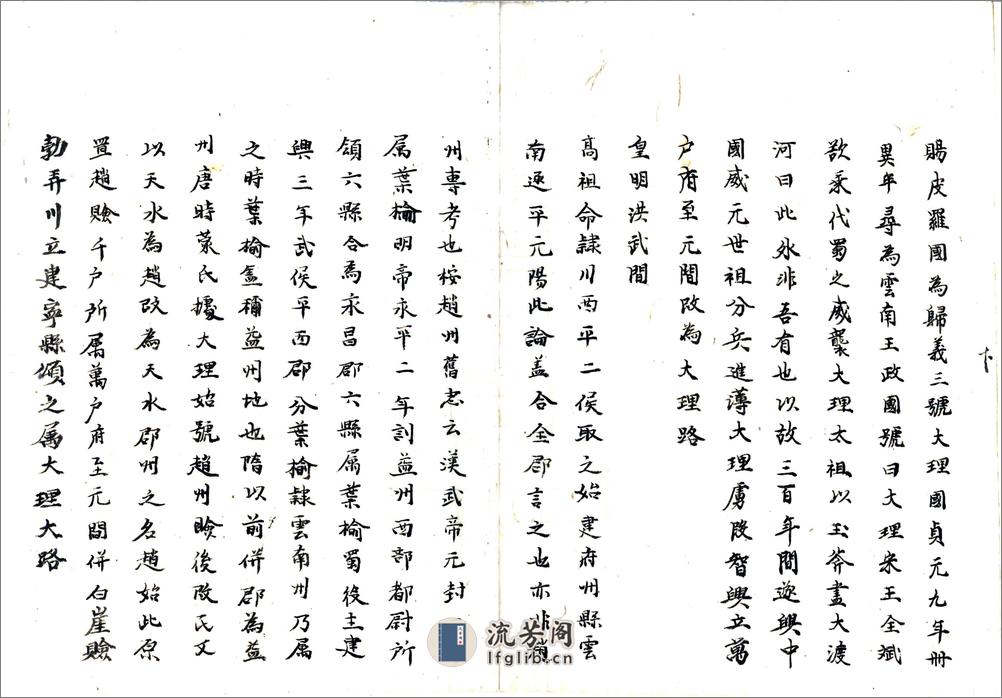 賜皮羅國為歸義三號大理國貞元九年冊
異年尋為雲南王政國號曰大理宋王全斌
欲乘代蜀之威襲大理太祖以玉斧畫大渡
河曰此外非吾有也以故三百年間遂與中
國威元世祖分兵進薄大理虜段智興立萬
户府至元間改為大理路
皇明洪武間
高祖命隷川西平二侯取之始建府州縣雲
南逐平元陽此論盖合全郡言之也亦非
州專考也桉趙州舊志云漢武帝元封
属葉榆明帝永平二年割益州西部都尉所
領六縣合為永昌郡六縣属葉榆蜀後主建
興三年武侯平西郡分葉榆隷雲南州乃属
之時葉榆盖稱益州地也隋以前併郡為益
州唐時蒙氏據大理始號趙州瞼後段氏又
以天水為趙改為天水郡州之名趙始此原
置趙瞼千户所属萬户府至元間併白崖瞼
勃弄川立建寧縣領之属大理大路
下
流芳阁
lfglib.cn